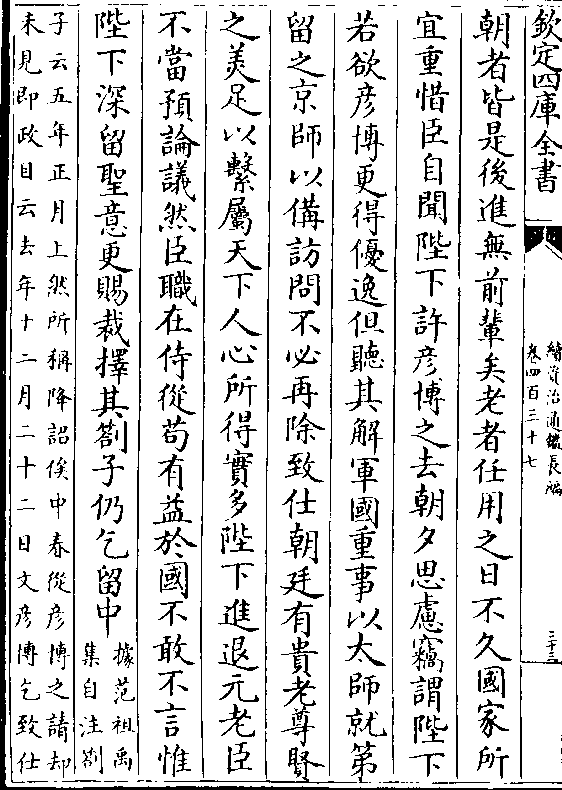 欽定四庫全書
續資治通鑑長編
卷四百三十七
三十三
朝者皆是後進無前輩矣老者任用之日不久國家所
宜重惜臣自聞陛下許彦博之去朝夕思慮竊謂陛下
若欲彦博更得優逸但聽其解軍國重事以太師就第
留之京師以備訪問不必再除致仕朝廷有貴老尊賢
之美足以繫屬天下人心所得實多陛下進退元老臣
不當預論議然臣職在侍從茍有益於國不敢不言惟
陛下深留聖意更賜裁擇其劄子仍乞留中
據范祖禹
集自注劄
子云五年正月上然所稱降詔俟中春從彦博之請却
未見即政目云去年十二月二十二日文彦博乞致仕